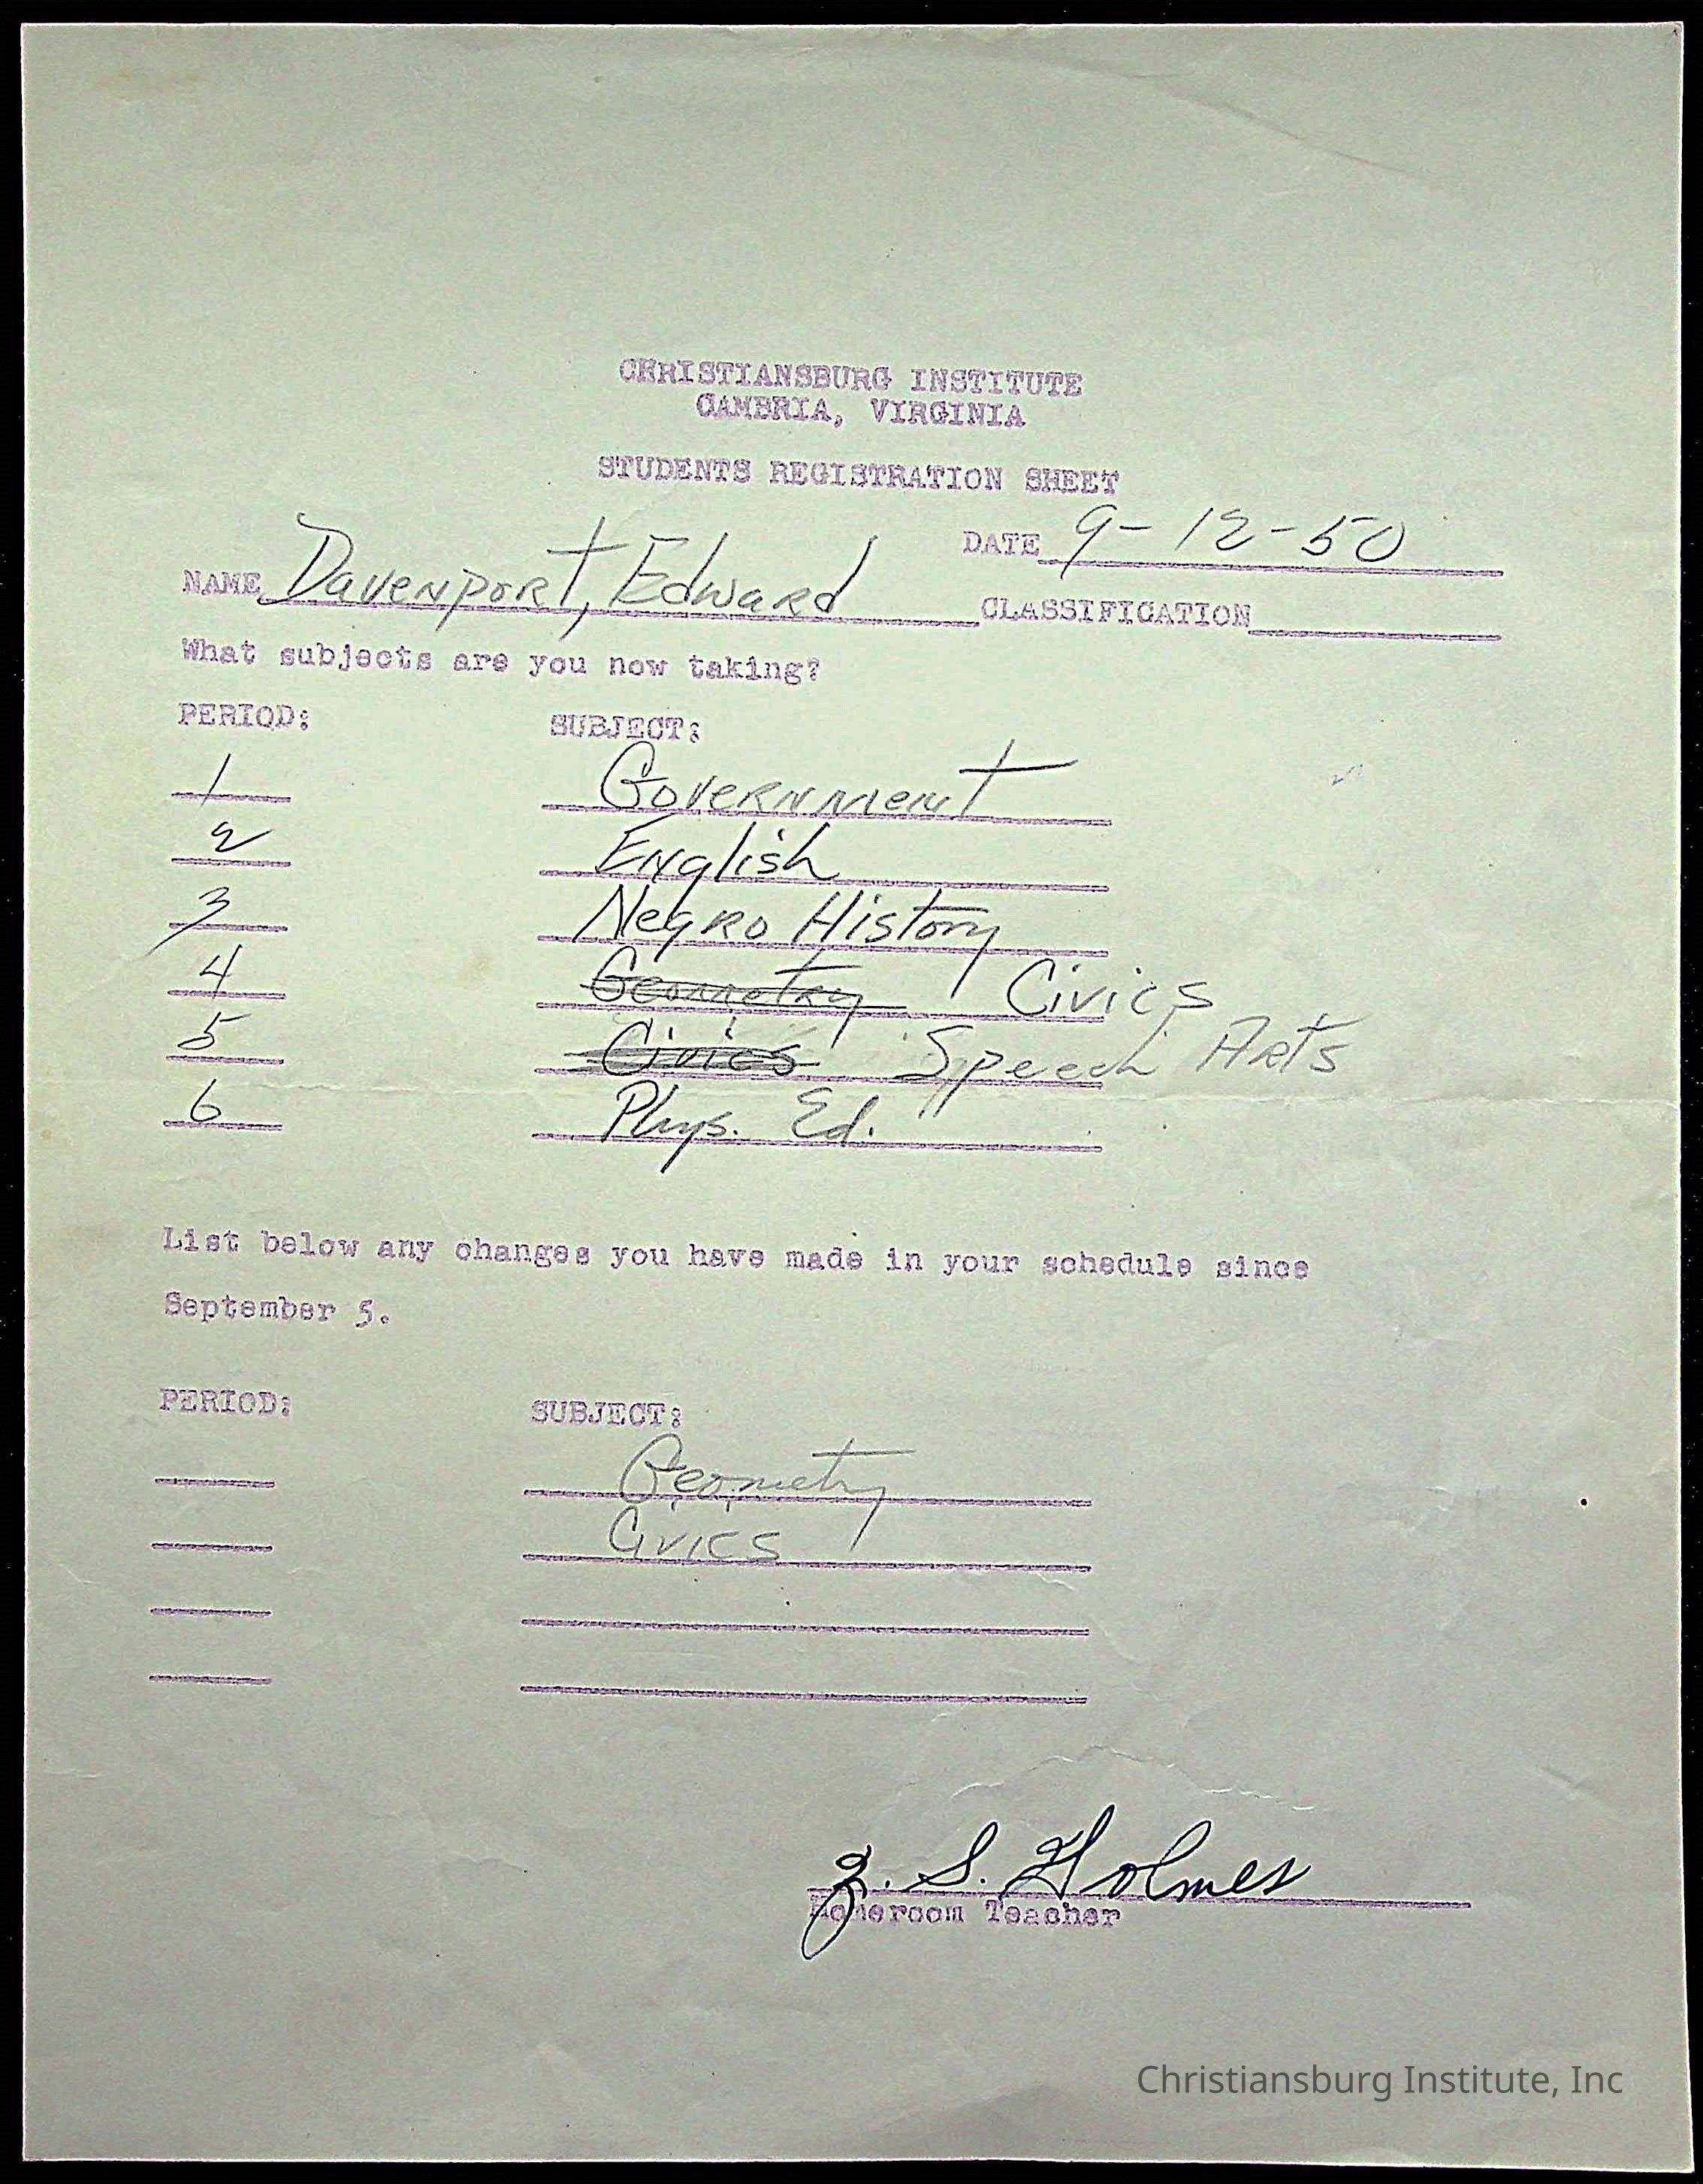 CHRISTIANSBURG INSTITUTE
CAMBRIA, VIRGINIA
STUDENTS REGISTRATION SHEET
DATE 9-12-50
NAME Davenport, Edward CLASSIFICATION
What subjects are you now taking?
PERIOD: SUBJECT:
1 Government
2 English
3 Negro History
4 Geometry Civics
5 Civics Speech Arts
6 Phys. Ed.
List below any changes you have made in your schedule since
September 5.
PERIOD: SUBJECT:
Geometry
Civics
Z. S. Holmes
Homeroom Teacher
Christiansburg Institute, Inc